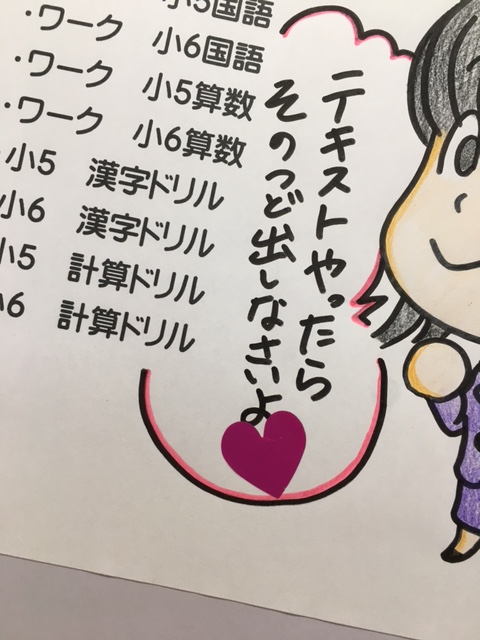 小5国語
・ワーク 小6国語
・ワーク 小5算数
・ワーク 小6算数
・小5 漢字ドリル
小6 漢字ドリル
小5 計算ドリル
小6 計算ドリル
テキストやったら
そのつど出しなさいよ